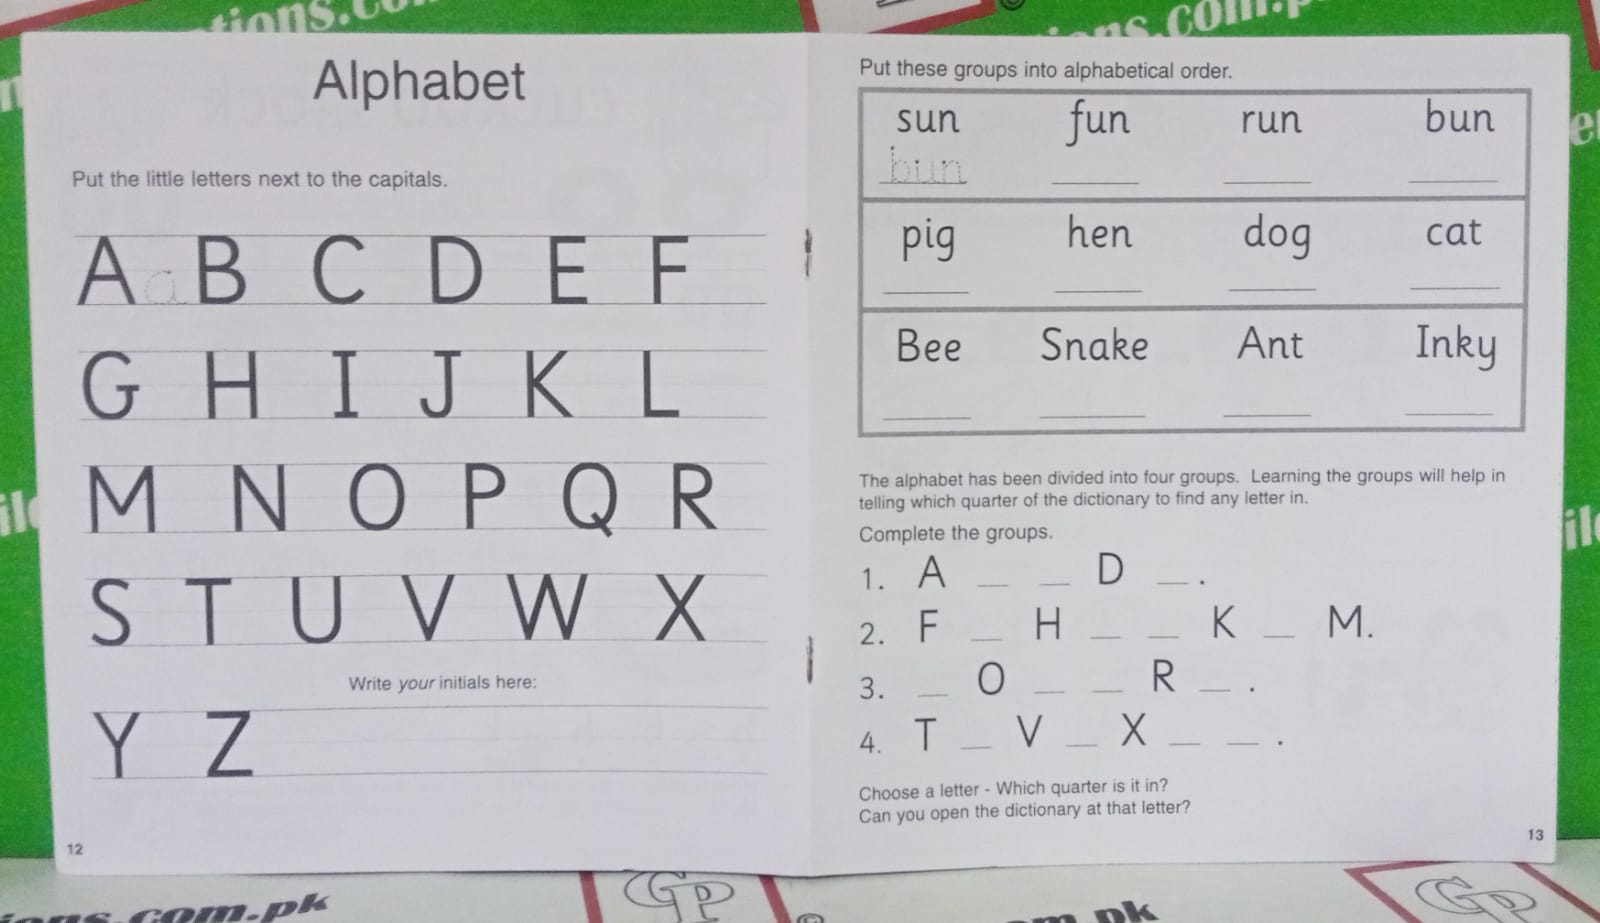 Alphabet
Put the little letters next to the capitals.
A a B C D E F
G H I J K L
M N O P Q R
S T U V W X
Write your initials here:
Y Z
12
Put these groups into alphabetical order.
sun fun run bun
bun ___ ___ ___
pig hen dog cat
___ ___ ___ ___
Bee Snake Ant Inky
___ ___ ___ ___
The alphabet has been divided into four groups. Learning the groups will help in
telling which quarter of the dictionary to find any letter in.
Complete the groups.
1. A _ _ D _ .
2. F _ H _ _ K _ M.
3. _ O _ _ R _ .
4. T _ V _ X _ _ .
Choose a letter - Which quarter is it in?
Can you open the dictionary at that letter?
13
GP
GP